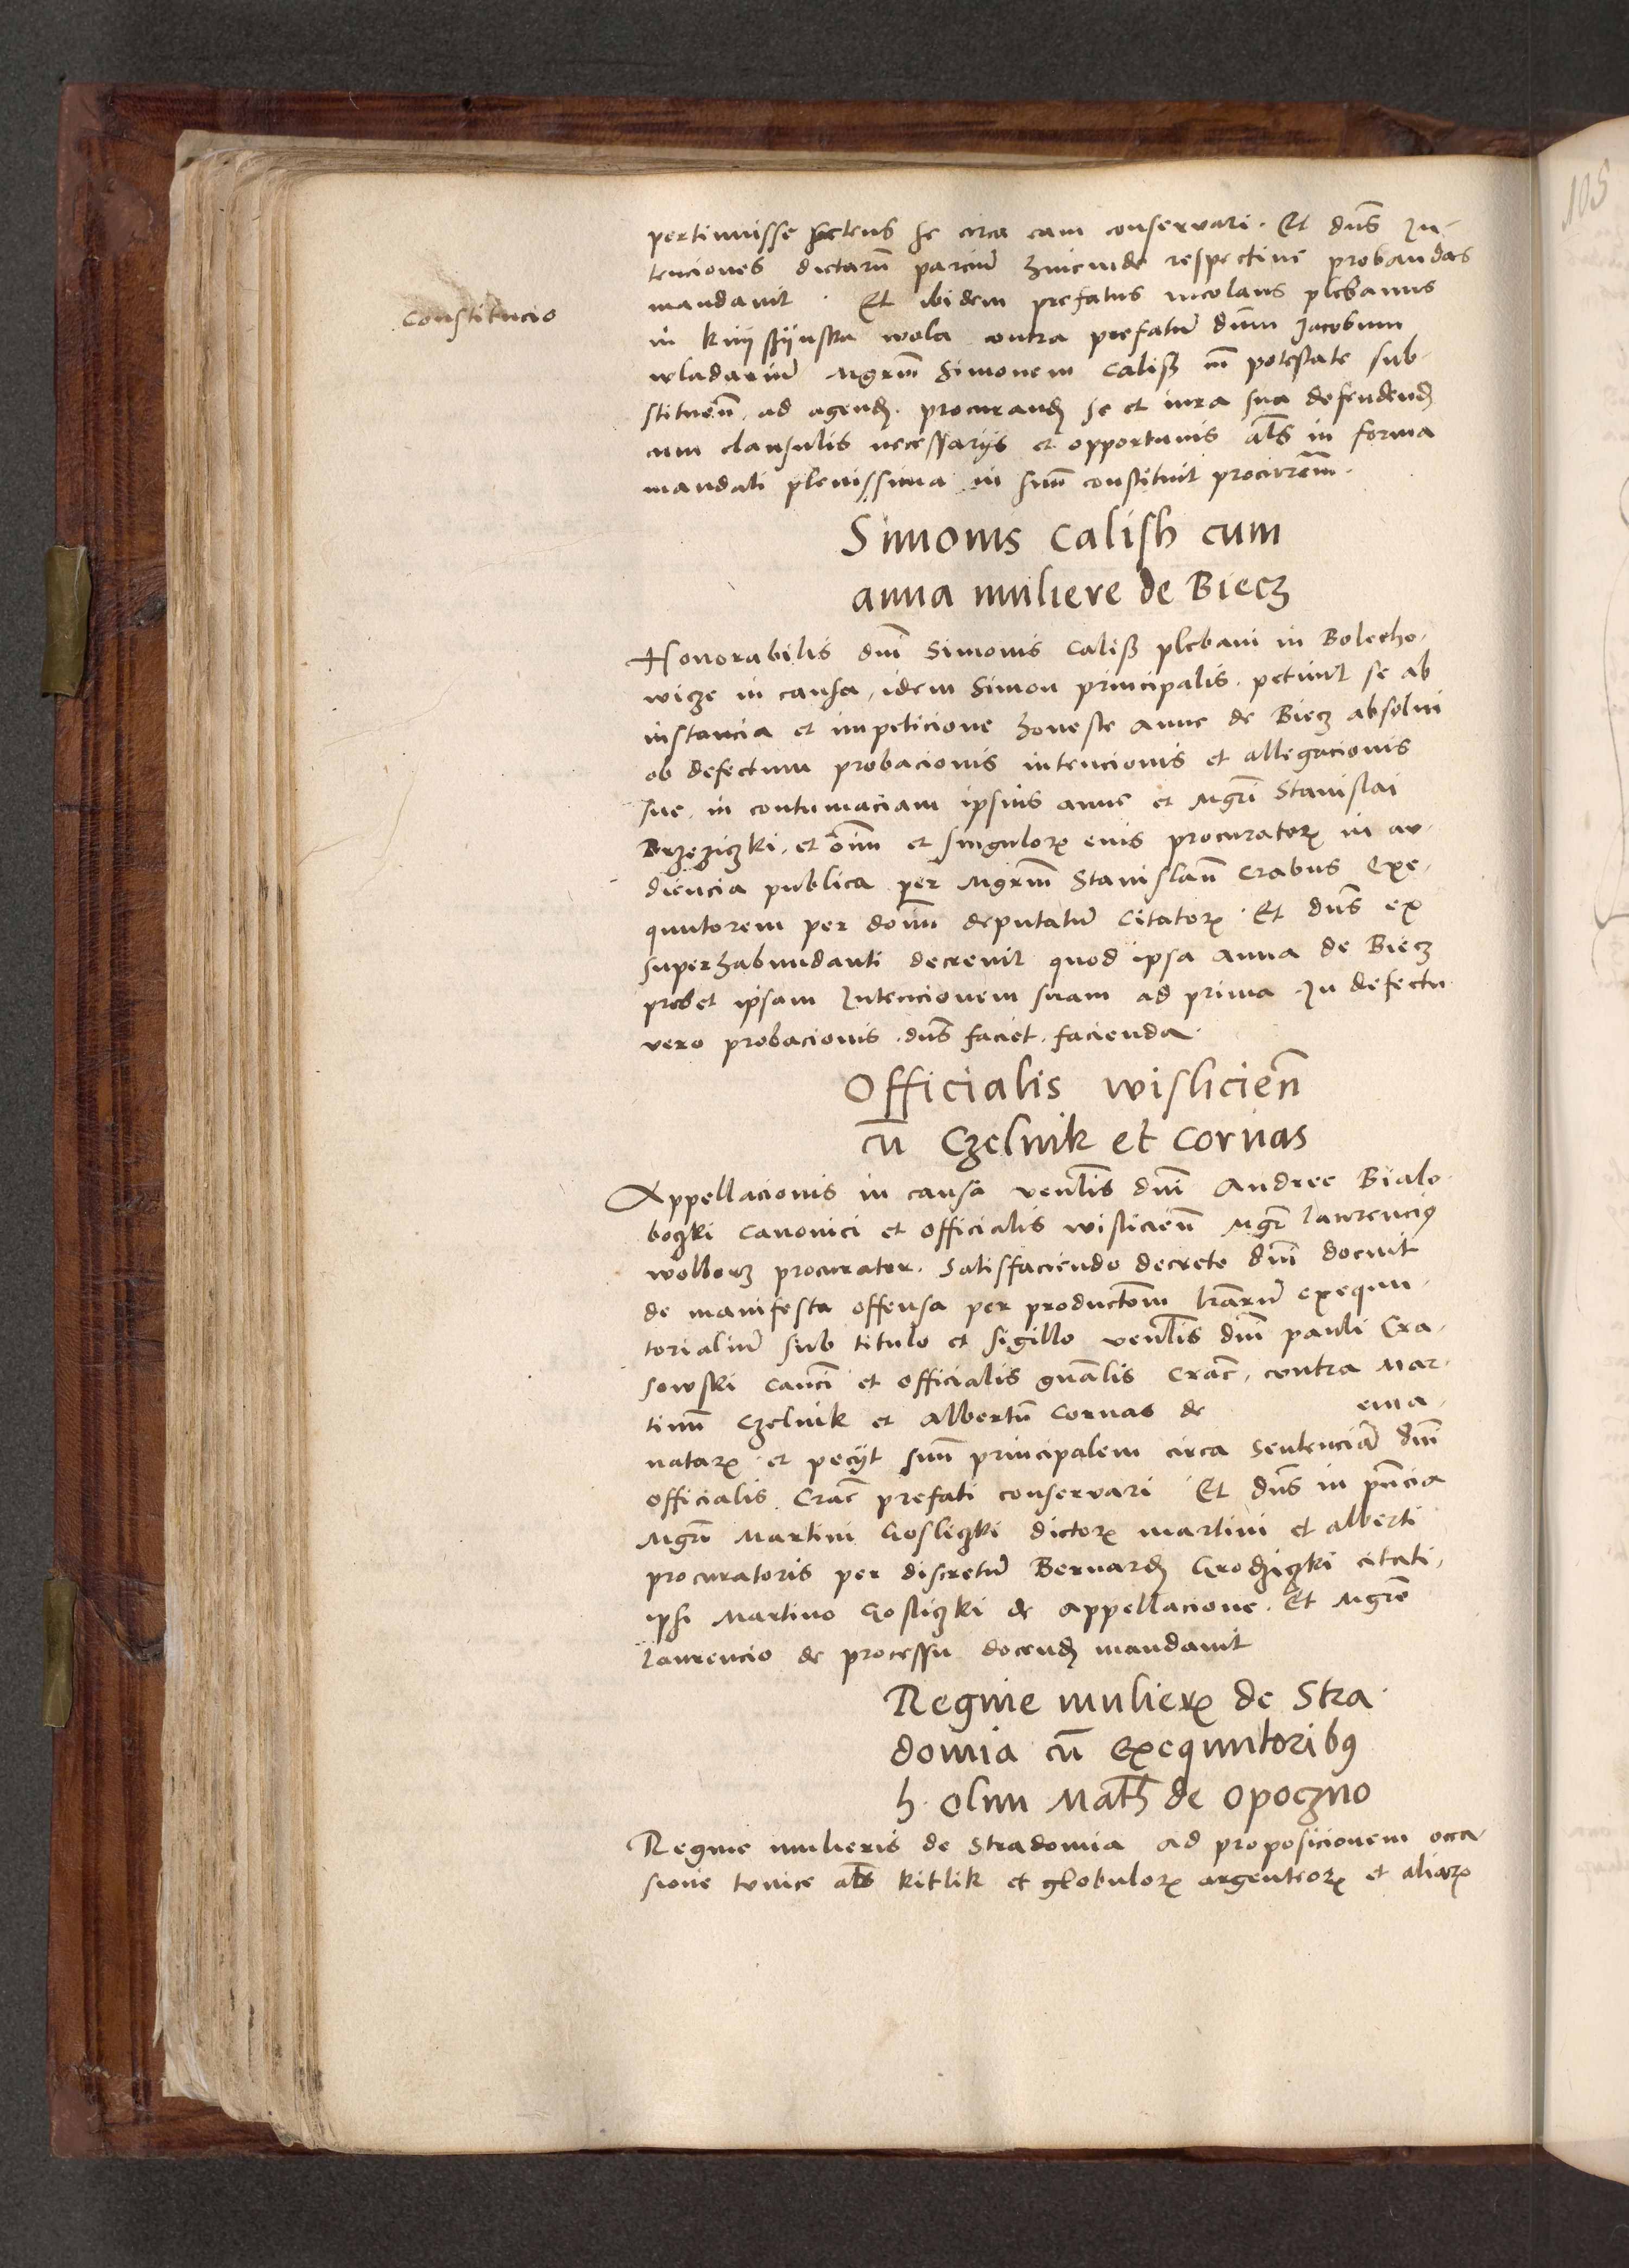 105
pertinuisse petens se circa eam conservari. Et dns In-
tenciones dictarū parciū hincinde respective probandas
mandavit. Et ibidem prefatus nicolaus plebanus
Constitucio
in wola contra prefatū dnm Jacobum
wladariū Mgrm Simonem Caliß cū potestate sub-
stituen. ad agend. procurand se et iura sua defendend
cum clausulis necessarijs et opportunis als in forma
mandati plenissima in suū constituit procurrem.
Simonis Calish cum
anna muliere de Biecz
Honorabilis dni Simonis Caliß plebani in Bolecho-
wicze in causa, idem Simon principalis. petiuit se ab
instancia et impeticione honeste Anne de Biecz absolui
ob defectum probacionis intencionis et allegacionis
sue. in contumaciam ipsius anne et Mgri Stanislai
Brzeziczki. et oim et singulorꝝ eius procuratorꝝ in au-
diencia publica per Mgrm Stanislaū Crabus Exe-
quutorem per dominū deputatū Citatorꝝ. Et dns ex
superhabundanti decrevit quod ipsa Anna de Biecz
probet ipsam Intencionem suam ad prima. In defectu
vero probacionis. dns faciet. facienda.
Officialis wislicien̄
cū Czelnik et Cornas
Appellacionis in causa venlis dni Andree Bialo-
boczki Canonici et Officialis wislicien̄ Mgr laurencius
wolborz procurator. Satisfaciendo decreto dni docuit
de manifesta offensa per productōm lrarū exequu-
torialiū sub titulo et sigillo venlis dni pauli Cra-
sowski Canci et officialis gnalis Crac, contra Mar-
tinū Czelnik et Albertū Cornas de ema-
natarꝝ et pecijt suū principalem circa Sentenciā dni
officialis Crac prefati conservari Et dns in pncia
Mgri Martini Gosliczki dictorꝝ martini et alberti
procuratoris per discretū Bernard Grodziczki citati,
ipsi Martino Gosliczki de Appellacione. Et Mgro
laurencio de processu docend mandavit
Regine mulierꝝ de Stra-
domia cū Exequutoribꝰ
h. olim Math de Opoczno
Regine mulieris de Stradomia ad proposicionem occa-
sione tunice als kitlik et globulorꝝ argenteorꝝ et aliarꝝ